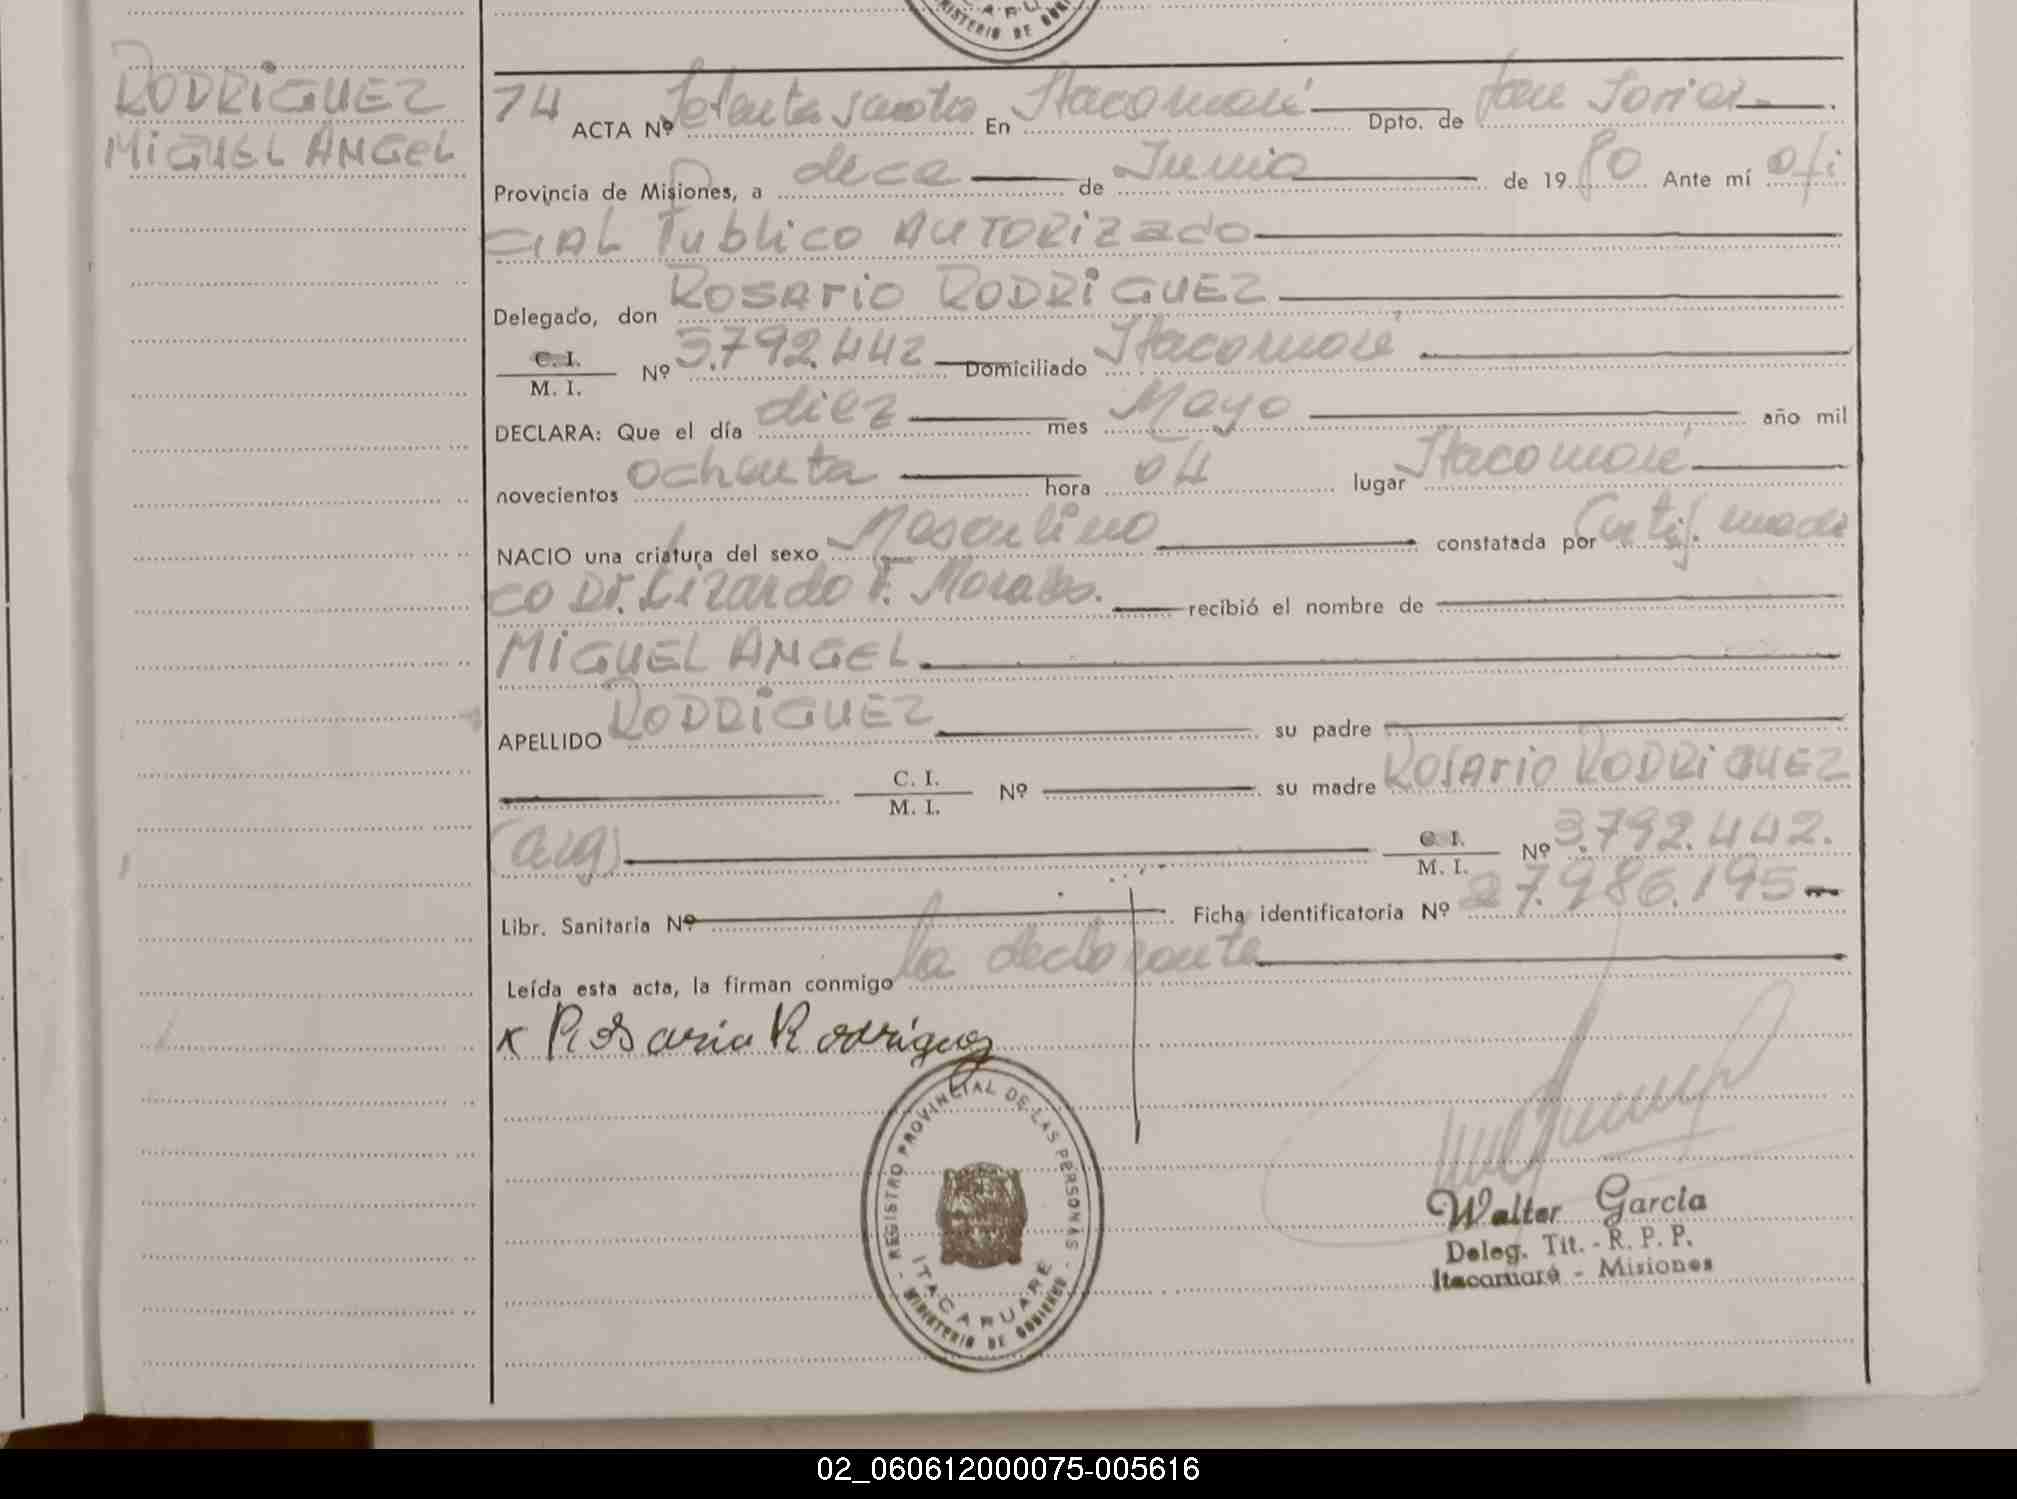 CARU
MINISTERIO DE GOBI
RODRIGUEZ
MIGUEL ANGEL
74 ACTA Nº Setenta y cuatro En Itacaruaré Dpto. de San Javier
Provincia de Misiones, a doce de Junio de 1980 Ante mí ofi
CIAL Publico AUTORIZADO
Delegado, don ROSARIO RODRIGUEZ
C. I. / M. I. Nº 3.792.442 Domiciliado Itacaruaré
DECLARA: Que el día diez mes Mayo año mil
novecientos ochenta hora 04 lugar Itacaruaré
NACIO una criatura del sexo Masculino constatada por Certif. medi
co Dr. Lizardo F. Morales. recibió el nombre de
MIGUEL ANGEL
APELLIDO RODRIGUEZ su padre
C. I. / M. I. Nº su madre ROSARIO RODRIGUEZ
(arg) C. I. / M. I. Nº 3.792.442.
Libr. Sanitaria Nº Ficha identificatoria Nº 27.986.195
Leída esta acta, la firman conmigo la declarante
x Rosario Rodriguez
REGISTRO PROVINCIAL DE LAS PERSONAS
ITACARUARE
MINISTERIO DE GOBIERNO
Walter García
Deleg. Tit. - R. P. P.
Itacaruaré - Misiones
02_060612000075-005616